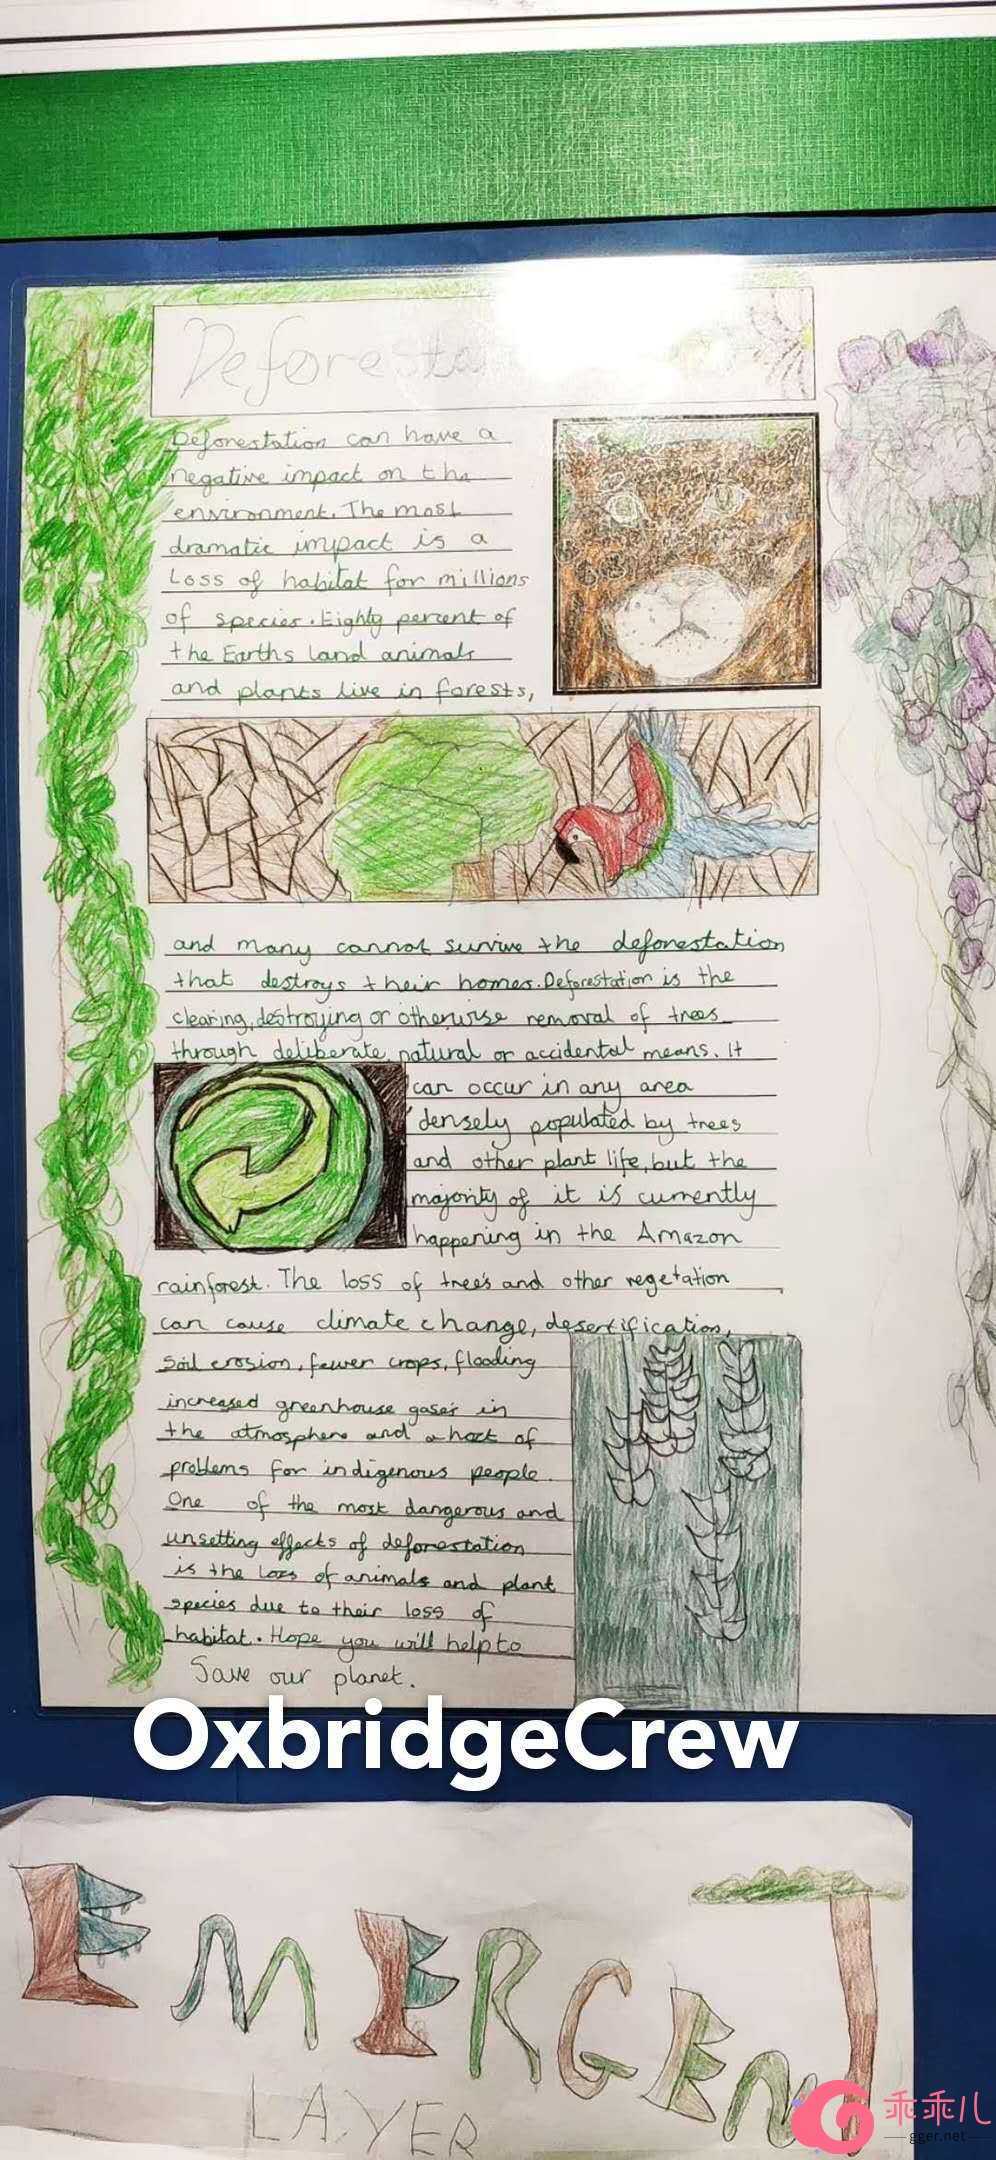 Deforesta
Deforestation can have a
negative impact on the
environment. The most
dramatic impact is a
Loss of habitat for millions
of species. Eighty percent of
the Earths land animals
and plants live in forests,
and many cannot survive the deforestation
that destroys their homes. Deforestation is the
clearing, destroying or otherwise removal of trees
through deliberate, natural or accidental means. It
can occur in any area
densely populated by trees
and other plant life, but the
majority of it is currently
happening in the Amazon
rainforest. The loss of tree's and other vegetation
can cause climate change, desertification,
soil erosion, fewer crops, flooding
increased greenhouse gases in
the atmosphere and a host of
problems for indigenous people.
One of the most dangerous and
unsetting effects of deforestation
is the loss of animals and plant
species due to their loss of
habitat. Hope you will help to
Save our planet.
OxbridgeCrew
EMERGENT
LAYER
乖乖儿
gger.net